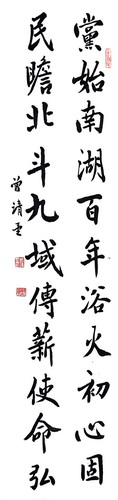 黨始南湖百年浴火初心固
民瞻北斗九域傳薪使命弘
曾靖雲